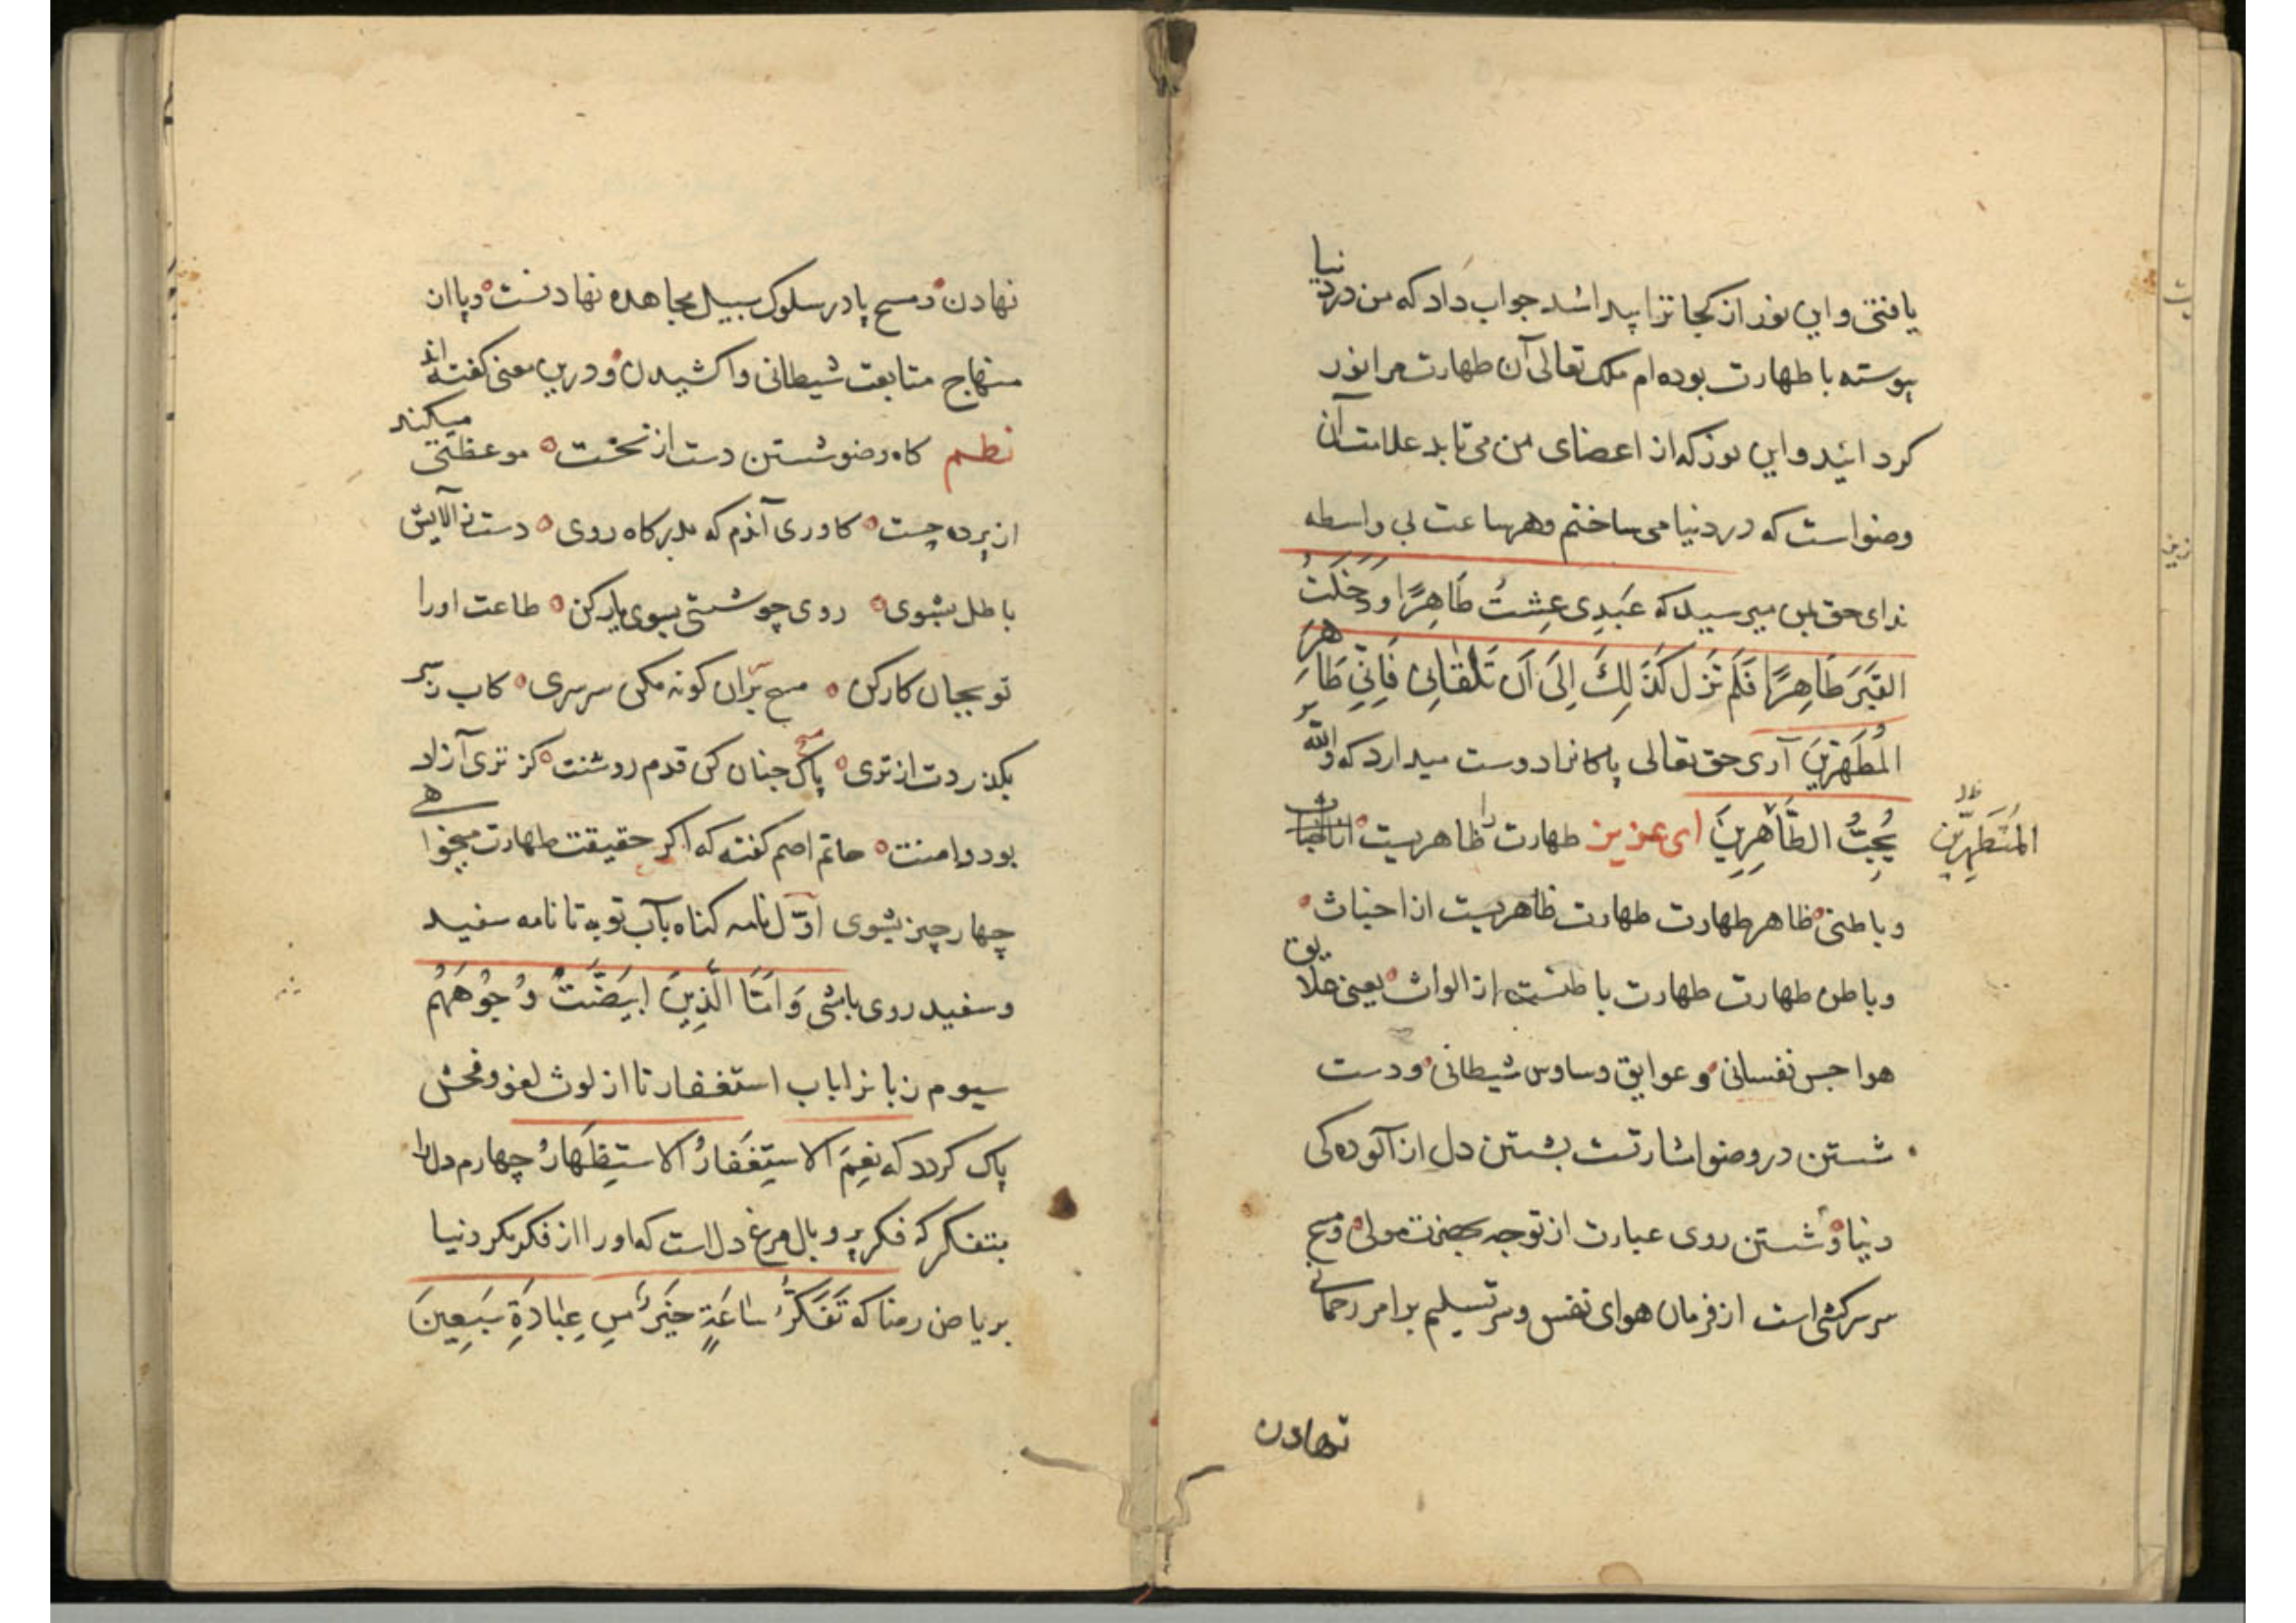 یافتی و این نور از کجا ترا پیدا شد جواب داد که من در دنیا
پیوسته با طهارت بوده‌ام ملک تعالی آن طهارت مرا نور
کردانید و این نور که از اعضای من می تابد علامت آن
وضو است که در دنیا می ساختم و هر ساعت بی واسطه
ندای حق بمن میرسید که عَبدِی عِشتُ طَاهِرًا وَ دَخَلتُ
القَبَرَ طَاهِرًا فَلَم تَزل کَذَ لِكَ اِلیَ اَن تَلقَانِی فَاِنّیِ طَاهِرَ
المُطَهَرِینَ آری حق تعالی پاکانرا دوست میدارد که والله
یُحِبُّ الطَّاهِرِینَ ای عزیز طهارت را ظاهریست
المُتَطَهِّرِین
و باطنی ظاهر طهارت طهارت ظاهریست از اخباث
و باطن طهارت طهارت باطنست از الواث یعنی علایق
هواجس نفسانی و عوایق وساوس شیطانی و دست
شستن در وضو اشارتست بشستن دل از آلوده کی
دنیا و شستن روی عبارت از توجه بحضرت مولی و مسح
سر سرکشی است از فرمان هوای نفس و سر تسلیم بر امر رحمانی
نهادن
نهادن و مسح پا در سلوک سبیل مجاهده نهادنست و پا از
منهاج متابعت شیطانی واکشیدن و درین معنی کفته‌اند
نظم کاه وضو شستن دست از نخست موعظتی میکند
از پرده چست کاوری آندم که بدرکاه روی دست ز آلایش
باطل بشوی روی چو شستی بسوی یار کن طاعت او را
تو بجان کار کن مسح بران کونه مکن سرسری کاب ز سر
بکذردت از تری پاک چنان کن قدم روشنت کز تری آزاد
بود دامنت حاتم اصم کفته که اکر حقیقت طهارت میخواهی
چهار چیز بشوی اوّل نامه کناه بآب توبه تا نامه سفید
و سفید روی باشی وَ اَمّاَ الَّذِینَ ابیَضَّتُ وُجُوهَهُم
سیوم زبانرا باب استغفار تا از لوث لغو و فحش
پاک کردد که نِعِمَ الاستِغَفارُ الاستِظهَارُ چهارم دل را
بتفکر که فکر پر و بال مرغ دل است که اورا از فکر مکر دنیا
بریاض رضا که تَفَکَرُّ سَاعَةٍ خَیَرُ مِن عِبَادَةِ سَبَعِینَ